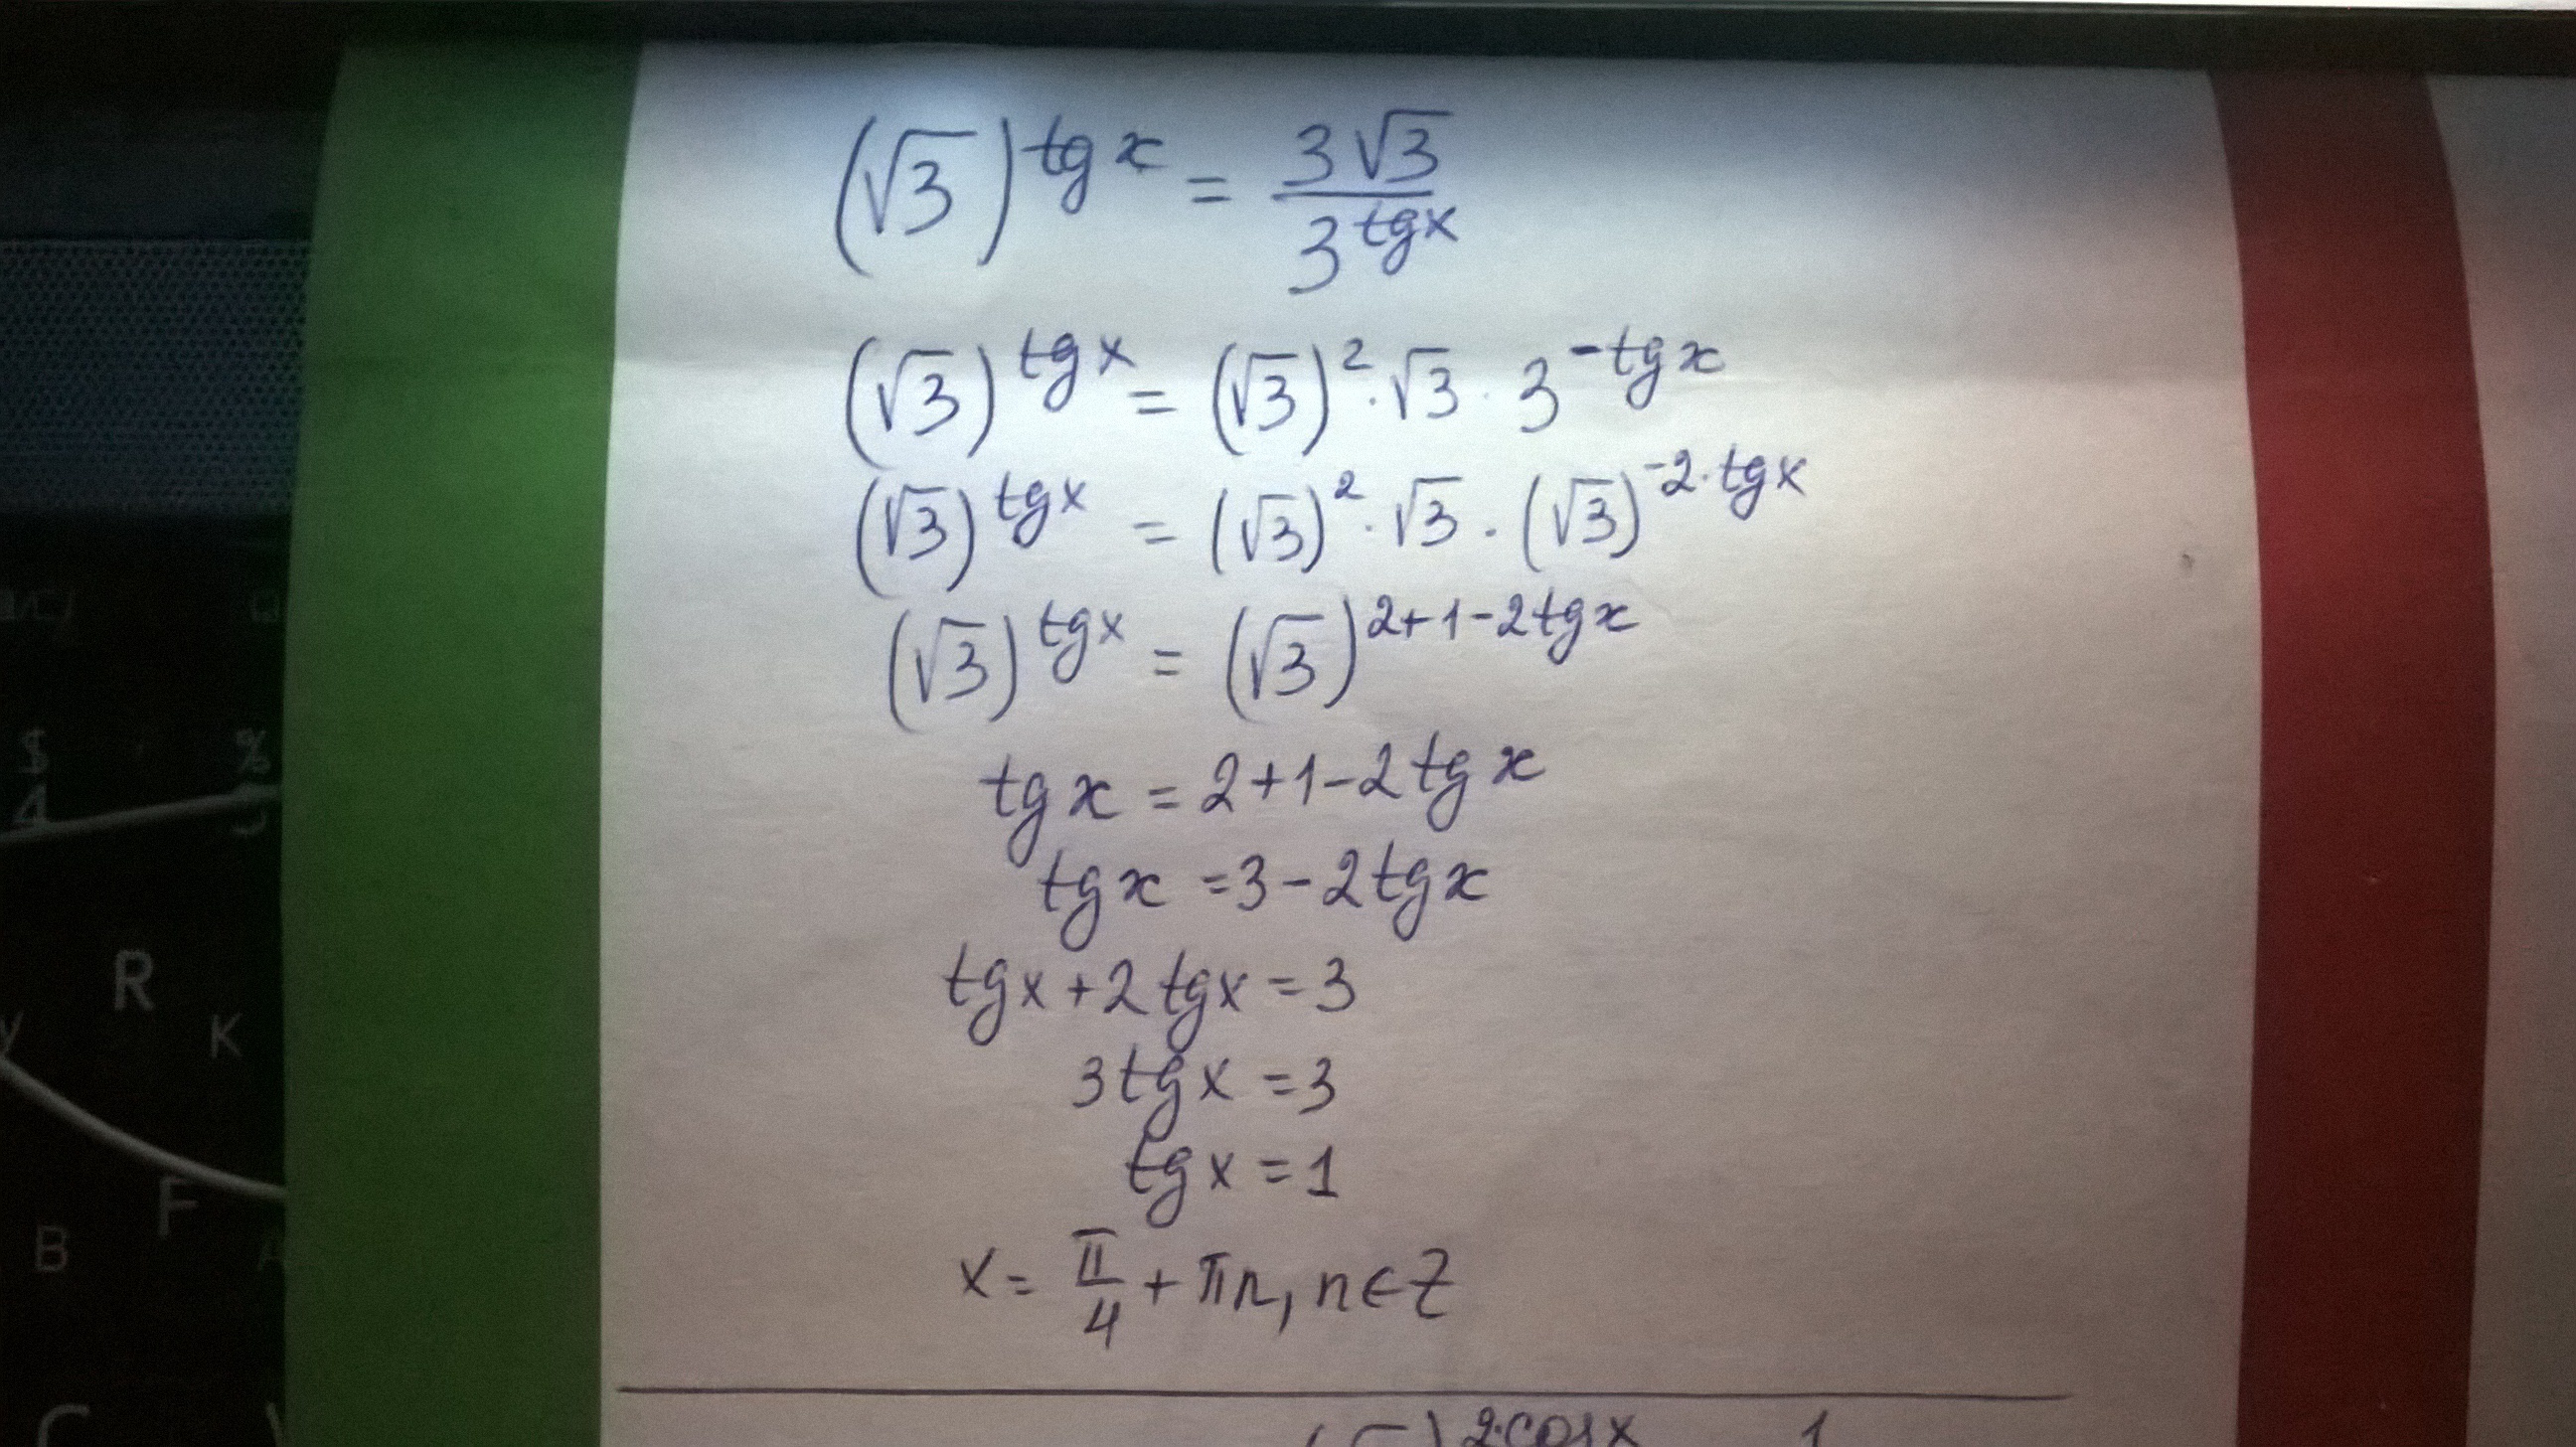 (√3)^tg x = 3√3 / 3^tgx
(√3)^tg x = (√3)^2 · √3 · 3^-tg x
(√3)^tgx = (√3)^2 · √3 · (√3)^-2·tgx
(√3)^tgx = (√3)^2+1-2tgx
tg x = 2+1-2tg x
tg x = 3-2tg x
tgx+2tgx = 3
3tgx = 3
tgx = 1
x = π/4 + πn, n∈Z
2·cosx 1
$ %
4
R
K
F
B